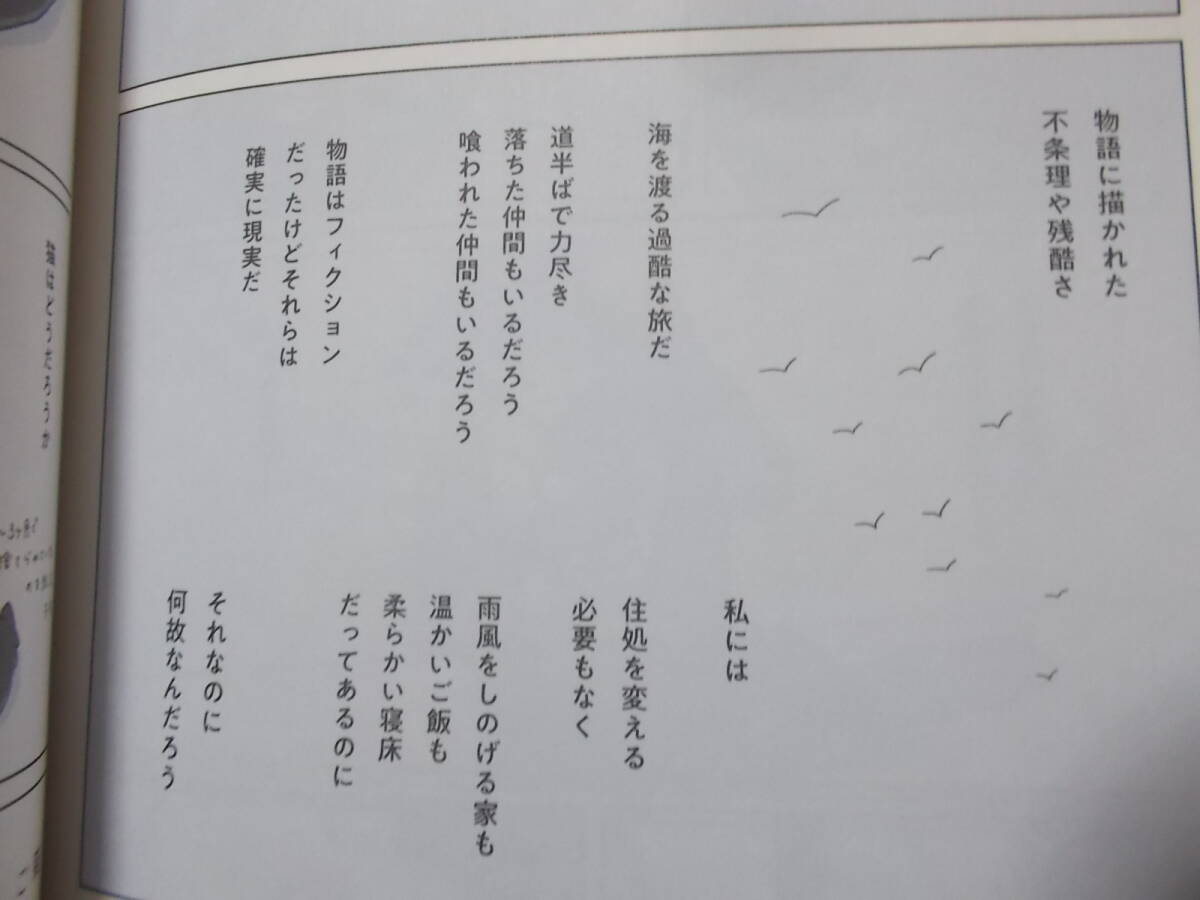 物語に描かれた
不条理や残酷さ
海を渡る過酷な旅だ
道半ばで力尽き
落ちた仲間もいるだろう
喰われた仲間もいるだろう
物語はフィクション
だったけどそれらは
確実に現実だ
私には
住処を変える
必要もなく
雨風をしのげる家も
温かいご飯も
柔らかい寝床
だってあるのに
それなのに
何故なんだろう
猫はどうだろうか